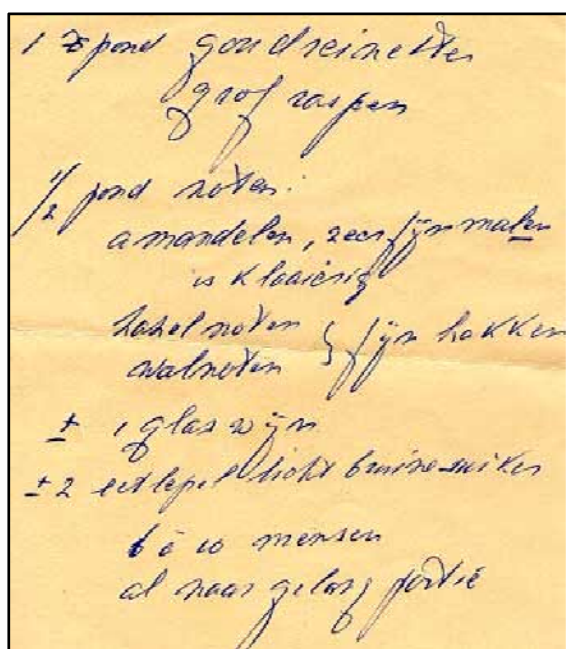 1 pond goudreinetten
grof raspen
1/2 pond noten:
amandelen, zeer fijn malen
is klaaiërig
hazelnoten } fijn hakken
walnoten
± 1 glas wijn
± 2 eetlepel licht bruine suiker
6 à 10 mensen
al naar gelang portie